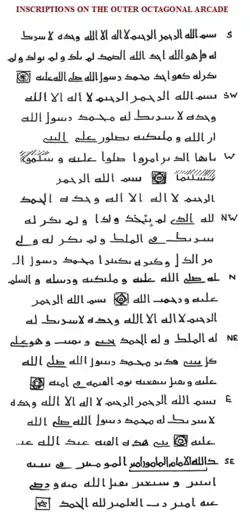 INSCRIPTIONS ON THE OUTER OCTAGONAL ARCADE
بسم الله الرحمن الرحيم لا اله الا الله وحده لا شريك S
له قل هو الله احد الله الصمد لم يلد ولم يولد ولم
يكن له كفوا احد محمد رسول الله صلى الله عليه
بسم الله الرحمن الرحيم لا اله الا الله SW
وحده لا شريك له محمد رسول الله
ان الله وملئكته يصلون على النبي
يايها الذين امنوا صلوا عليه وسلموا W
تسليما بسم الله الرحمن
الرحيم لا اله الا الله وحده الحمد
لله الذي لم يتخذ ولدا ولم يكن له NW
شريك في الملك ولم يكن له ولي
من الذل وكبره تكبيرا محمد رسول ا
لله صلى الله عليه وملئكته ورسله والسلم N
عليه ورحمت الله بسم الله الرحمن
الرحيم لا اله الا الله وحده لا شريك له
له الملك وله الحمد يحيي ويميت وهو على NE
كل شي قدير محمد رسول الله صلى الله
عليه وتقبل شفعته يوم القيمه في امته
بسم الله الرحمن الرحيم لا اله الا الله وحده E
لا شريك له محمد رسول الله صلى الله
عليه بنى هذه القبه عبد الله عبـ
ـد الله الامام المامون امير المومنين في سنه SE
اثنتين وسبعين تقبل الله منه ورضي
عنه امين رب العلمين لله الحمد